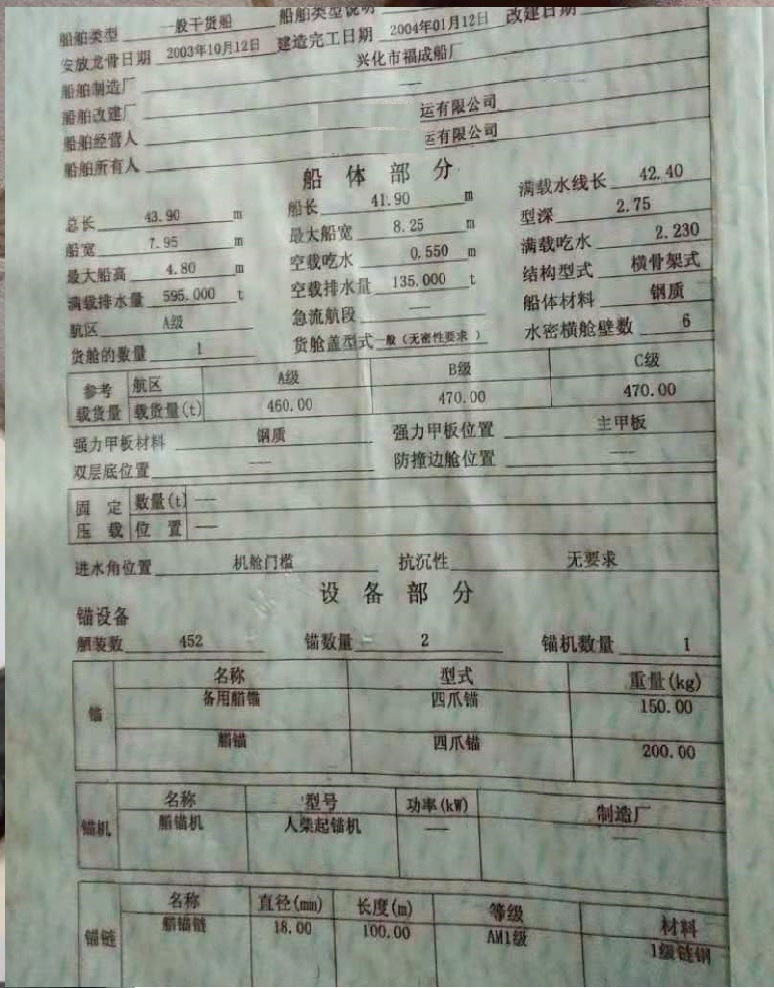 船舶类型 一般干货船 船舶类型说明
安放龙骨日期 2003年10月12日 建造完工日期 2004年01月12日 改建日期
船舶制造厂 兴化市福成船厂
船舶改建厂 —
船舶经营人 运有限公司
船舶所有人 运有限公司
船体部分
总长 43.90 m 船长 41.90 m 满载水线长 42.40
船宽 7.95 m 最大船宽 8.25 m 型深 2.75
最大船高 4.80 m 空载吃水 0.550 m 满载吃水 2.230
满载排水量 595.000 t 空载排水量 135.000 t 结构型式 横骨架式
航区 A级 急流航段 — 船体材料 钢质
货舱的数量 1 货舱盖型式 一般（无密性要求） 水密横舱壁数 6
参考载货量 航区 A级 B级 C级
载货量(t) 460.00 470.00 470.00
强力甲板材料 钢质 强力甲板位置 主甲板
双层底位置 — 防撞边舱位置 —
固定压载 数量(t) —
位置 —
进水角位置 机舱门槛 抗沉性 无要求
设备部分
锚设备
舾装数 452 锚数量 2 锚机数量 1
锚 名称 型式 重量(kg)
备用艏锚 四爪锚 150.00
艏锚 四爪锚 200.00
锚机 名称 型号 功率(kW) 制造厂
艏锚机 人柴起锚机 — —
锚链 名称 直径(mm) 长度(m) 等级 材料
艏锚链 18.00 100.00 AM1级 1级链钢